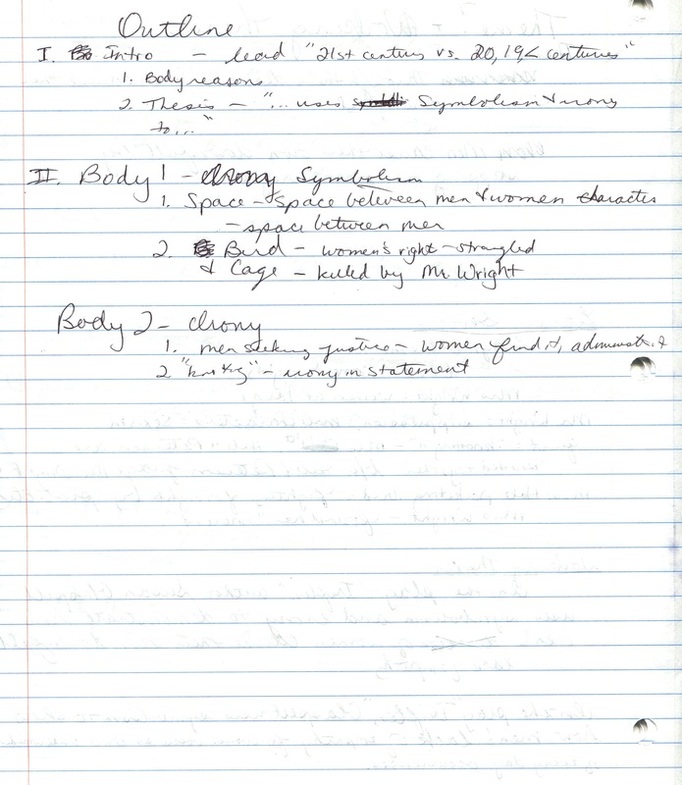 Outline
I. Intro - lead "21st century vs. 20, 19< centuries"
1. Body reasons
2. Thesis - "... uses Symbolism & irony
to..."
II. Body 1 - Irony Symbolism
1. Space - space between men & women character
- space between men
2. Bird - women's right - strangled
& Cage - killed by Mr. Wright
Body 2 - Irony
1. men seeking justice - women find it, administ. it
2. - irony in statement